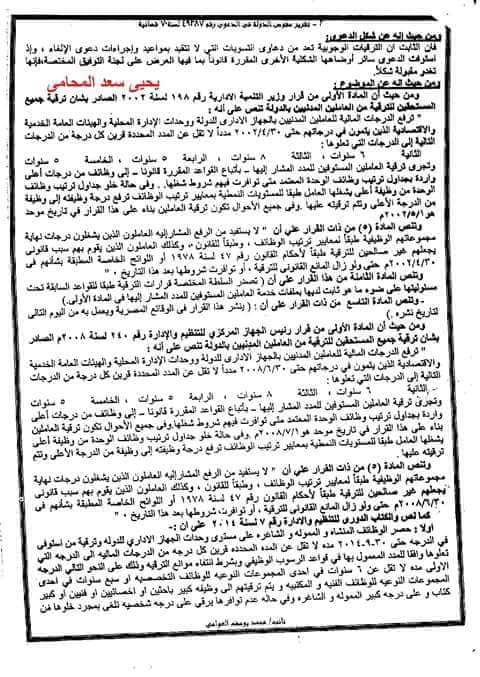 ٢ - تقرير مفوض الدولة في الدعوى رقم ٤٩٣٨٧ لسنة ٧٠ قضائية
ومن حيث إنه عن شكل الدعوى:
فإن الثابت أن الترقيات الوجوبية تعد من دعاوى التسويات التي لا تتقيد بمواعيد وإجراءات دعوى الإلغاء ، وإذ
استوفت الدعوى سائر أوضاعها الشكلية الأخرى المقررة قانوناً بما فيها العرض على لجنة التوفيق المختصة،فإنها
تغدو مقبولة شكلاً.
يحيى سعد المحامي
ومن حيث إنه عن الموضوع :
ومن حيث أن المادة الأولى من قرار وزير التنمية الإدارية رقم ١٩٨ لسنة ٢٠٠٢ الصادر بشأن ترقية جميع
المستحقين للترقية من العاملين المدنيين بالدولة تنص على أنه :
" ترفع الدرجات المالية للعاملين المدنيين بالجهاز الإداري للدولة ووحدات الإدارة المحلية والهيئات العامة الخدمية
والاقتصادية الذين يتمون في درجاتهم حتى ٢٠٠٢/٤/٣٠ مدداً لا تقل عن المدد المحددة قرين كل درجة من الدرجات
التالية إلى الدرجات التي تعلوها :
الثانية ٦ سنوات ، الثالثة ٨ سنوات ، الرابعة ٥ سنوات ، الخامسة ٥ سنوات
وتجرى ترقية العاملين المستوفين للمدد المشار إليها – باتباع القواعد المقررة قانوناً – إلى وظائف من درجات أعلى
واردة بجداول ترتيب وظائف الوحدة المعتمد متى توافرت فيهم شروط شغلها. . وفي حالة خلو جداول ترتيب وظائف
الوحدة من وظيفة أعلى يشغلها العامل طبقاً للمستويات النمطية بمعايير ترتيب الوظائف ترفع درجة وظيفته إلى وظيفة
من الدرجة الأعلى وتتم ترقيته عليها .وفي جميع الأحوال تكون ترقية العاملين بناء على هذا القرار في تاريخ موحد
هو ٢٠٠٢/٥/١م.
وتنص المادة (٥) من ذات القرار على أن " لا يستفيد من الرفع المشار إليه العاملون الذين يشغلون درجات نهاية
مجموعاتهم الوظيفية طبقاً لمعايير ترتيب الوظائف ، وطبقاً للقانون ، وكذلك العاملون الذين يقوم بهم سبب قانوني
يجعلهم غير صالحين للترقية طبقاً لأحكام القانون رقم ٤٧ لسنة ١٩٧٨ أو اللوائح الخاصة المطبقة بشأنهم في
٢٠٠٢/٤/٣٠م حتى ولو زال المانع القانوني للترقية ، أو توافرت شروطها بعد هذا التاريخ ."
وتنص المادة الثامنة من هذا القرار على أن ( تصدر السلطة المختصة قرارات الترقية طبقاً للقواعد السابقة تحت
مسئوليتها على ضوء ما هو ثابت لديها بملفات خدمة العاملين المستوفين للمدد المشار إليها في المادة الأولى.)
وتنص المادة التاسع من ذات القرار على أن : ( ينشر هذا القرار في الوقائع المصرية ويعمل به من اليوم التالي
لتاريخ نشره .)
ومن حيث أن المادة الأولى من قرار رئيس الجهاز المركزي للتنظيم والإدارة رقم ٢٤٠ لسنة ٢٠٠٨م الصادر
بشأن ترقية جميع المستحقين للترقية من العاملين المدنيين بالدولة تنص على أنه :
" ترفع الدرجات المالية للعاملين المدنيين بالجهاز الإداري للدولة ووحدات الإدارة المحلية والهيئات العامة الخدمية
والاقتصادية الذين يتمون في درجاتهم حتى ٢٠٠٨/٦/٣٠ مدداً لا تقل عن المدد المحددة قرين كل درجة من الدرجات
التالية إلى الدرجات التي تعلوها :
الثانية ٦ سنوات ، الثالثة ٨ سنوات الرابعة ٥ سنوات ، الخامسة ٥ سنوات
وتجرى ترقية العاملين المستوفين للمدد المشار إليها – باتباع القواعد المقررة قانوناً – إلى وظائف من درجات أعلى
واردة بجداول ترتيب وظائف الوحدة المعتمد متى توافرت فيهم شروط شغلها.وفي جميع الأحوال تكون الترقية
بناء على هذا القرار في تاريخ موحد هو ٢٠٠٨/٧/١م. وفي حالة خلو جداول ترتيب وظائف الوحدة من وظيفة أعلى
يشغلها العامل طبقاً للمستويات النمطية بمعايير ترتيب الوظائف ترفع درجة وظيفته إلى وظيفة من الدرجة الأعلى وتتم
ترقيته عليها .
وتنص المادة (٥) من ذات القرار على أن " لا يستفيد من الرفع المشار إليه العاملون الذين يشغلون درجات نهاية
مجموعاتهم الوظيفية طبقاً لمعايير ترتيب الوظائف ، وطبقاً للقانون ، وكذلك العاملون الذين يقوم بهم سبب قانوني
يجعلهم غير صالحين للترقية طبقاً لأحكام القانون رقم ٤٧ لسنة ١٩٧٨ أو اللوائح الخاصة المطبقة بشأنهم في
٢٠٠٨/٦/٣٠م حتى ولو زال المانع القانوني للترقية ، أو توافرت شروطها بعد هذا التاريخ . "
كما نص والكتاب الدوري للتنظيم والادارة رقم ٧ لسنة ٢٠١٤ على أن :-
أولا : حصر الوظائف المنشاه و الممولة و الشاغره على مستوى وحدات الجهاز الاداري للدوله وترقية من استوفى
في الدرجه حتى ٣٠-٩-٢٠١٤ مدة لا تقل عن المدد المحدده قرين كل درجه من الدرجات الماليه الى الدرجه التي
تعلوها وافقا للمدد المعمول بها في قواعد الرسوب الوظيفي وبشرط انتفاء موانع الترقيه وذلك على النحو التالي الدرجه
الاولى مده لا تقل عن ٦ سنوات في احدى المجموعات النوعيه للوظائف التخصصيه او سبع سنوات في احدى
المجموعات النوعيه للوظائف الفنيه و المكتبيه و يتم ترقيتهم الى وظيفه كبير باحثين او اخصائيين او فنيين او كبير
كتاب و على درجه كبير الممولة و الشاغره وفي حاله عدم توافرها يرقى على درجه شخصيه تلغى بمجرد خلوها من